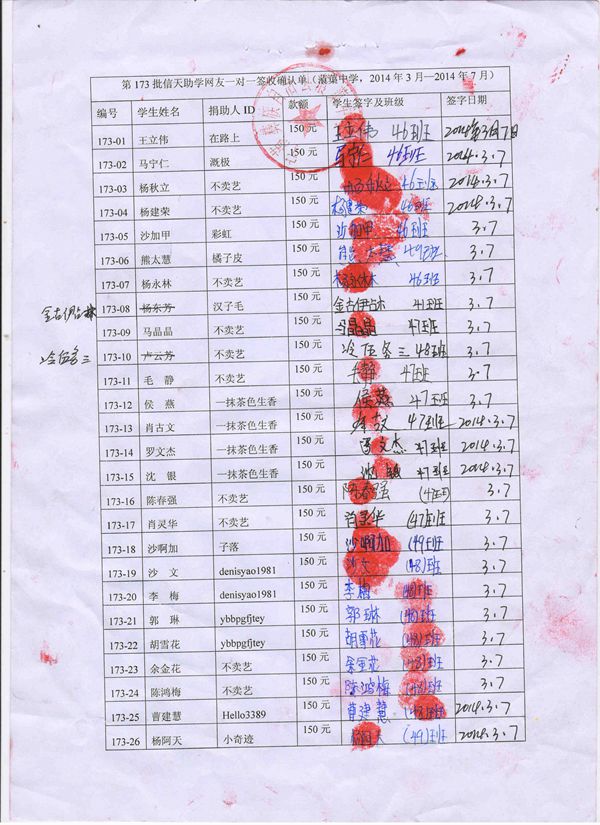 第 173 批信天助学网友一对一签收确认单（滇巢中学，2014 年 3 月—2014 年 7 月）
编号 学生姓名 捐助人 ID 款额 学生签字及班级 签字日期
173-01 王立伟 在路上 150 元 王立伟 46班 2014年3月7日
173-02 马宁仁 溉极 150 元 马宁仁 46班 2014.3.7
173-03 杨秋立 不卖艺 150 元 杨秋立 46班 2014.3.7
173-04 杨建荣 不卖艺 150 元 杨建荣 46班 2014.3.7
173-05 沙加甲 彩虹 150 元 沙加甲 46班 3.7
173-06 熊太慧 橘子皮 150 元 熊太慧 49班 3.7
173-07 杨永林 不卖艺 150 元 杨永林 46班 3.7
金古伊古林 173-08 杨东芳 汉子毛 150 元 金古伊古木 41班 3.7
173-09 马晶晶 不卖艺 150 元 马晶晶 47班 3.7
冷伍各三 173-10 卢云芳 不卖艺 150 元 冷伍各三 48班 3.7
173-11 毛 静 不卖艺 150 元 毛静 47班 3.7
173-12 侯 燕 一抹茶色生香 150 元 侯燕 47班 3.7
173-13 肖古文 一抹茶色生香 150 元 肖古文 47班 2014.3.7
173-14 罗文杰 一抹茶色生香 150 元 罗文杰 47班 2014.3.7
173-15 沈 银 一抹茶色生香 150 元 沈银 47班 2014.3.7
173-16 陈春强 不卖艺 150 元 陈春强 (47班) 3.7
173-17 肖灵华 不卖艺 150 元 肖灵华 (47)班 3.7
173-18 沙啊加 子落 150 元 沙啊加 (49)班 3.7
173-19 沙 文 denisyao1981 150 元 沙文 (48)班 3.7
173-20 李 梅 denisyao1981 150 元 李梅 (48)班 3.7
173-21 郭 琳 ybbpgfjtey 150 元 郭琳 (48)班 3.7
173-22 胡雪花 ybbpgfjtey 150 元 胡雪花 (48)班 3.7
173-23 余金花 不卖艺 150 元 余金花 (48)班 3.7
173-24 陈鸿梅 不卖艺 150 元 陈鸿梅 (48)班 3.7
173-25 曹建慧 Hello3389 150 元 曹建慧 (48)班 2014.3.7
173-26 杨阿天 小奇迹 150 元 杨阿天 (49)班 2014.3.7